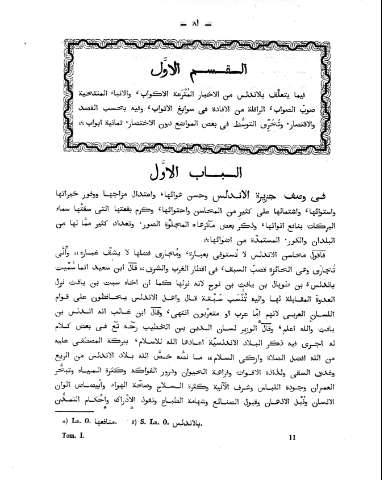 — ٨١ —
القسم الأوّل
فيما يتعلّف بالاندلس من الاخبار المُتْرَعة الاكواب، والانباء المنتحِية
صوْبَ الصواب، الرافلة من الافادة فى سوابغ الاثواب، وفيه بحسب القصد
والاقتصار، وتحرّى التوسّط فى بعض المواضع دون الاختصار، ثمانية ابواب
الباب الأوّل
فى وصف جزيرة الاندلس وحسن هوائها، واعتدال مزاجها ووفور خيراتها
واستوائها، واشتمالها على كثير من المحاسن واحتوائها، وكرم بقعتها التى سقتْها سماء
البركات بنافع انوائها، وذكر بعض مآثرها المجلوّة الصور، وتعداد كثير ممّا لها من
البلدان والكور، المستمدّة من اضوائها،
فاقول محاسن الاندلس لا تُستوفى بعبارة، ومجارى فضلها لا يشقّ غباره، وأنّى
تُجارى وهى الحائزة قصب السبق، فى اقطار الغرب والشرق، قال ابن سعيد انما سُمّيت
بالاندلس بن طوبال بن يافث بن نوح لانه نزلها كما ان اخاه سبت بن يافث نزل
العدوة المقابلة لها واليه تُنْسَب سَبْتة قال واهل الاندلس يحافظون على قوام
اللسان العربى لانهم امّا عرب او متعرّبون انتهى، وقال ابن غالب انه اندلس بن
يافث والله اعلم، وقال الوزير لسان الدين بن الخطيب رحّه تعّ فى بعض كلام
له اجرى فيه ذكر البلاد الاندلسيّة اعادها الله للاسلام، ببركة المصطفى عليه
من الله افضل الصلاة وازكى السلام، ما نصّه خصّ الله بلاد الاندلس من الريع
وغدق السقى ولذاذة الاقوات وفراهة الحيوان ودرور الفواكه وكثرة المياه وتبحّر
العمران وجودة اللباس وشرف الآنية وكثرة السلاح وصحّة الهواء وابيضاض الوان
الانسان ونُبْل الاذهان وقبول الصنائع وشهامة الطباع ونفوذ الادراك واحكام التمدّن
a) La. O. منافعها. b) S. La. O. بالاندلس.
Tom. I. 11